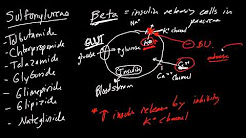 Sulfonylureas
- Tolbutamide
- Chlorpropamide
- Tolazamide
- Glyburide
- Glimepiride
- Glipizide
- Nateglinide
Beta = insulin releasing cells in
pancreas
K+ channel
GLUT
glucose
glucose
Insulin
Bloodstream
Ca2+ channel
* ↑ insulin release by inhibiting
K+ channel